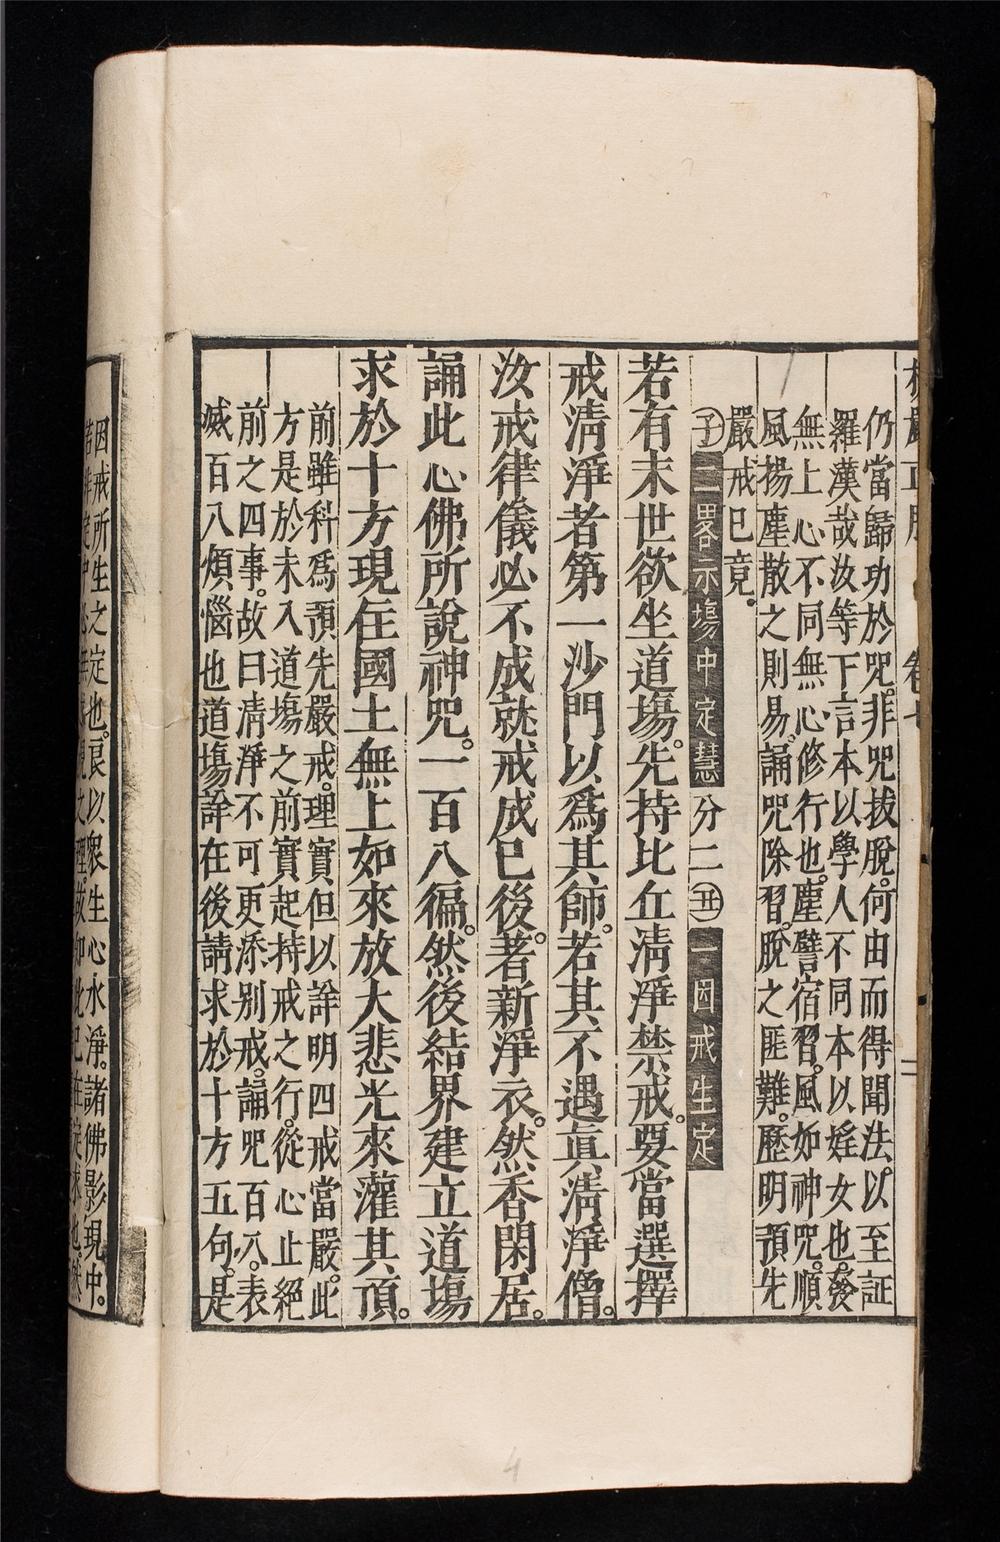 楞嚴正脉　卷七　二
仍當歸功於咒。非咒拔脫。何由而得聞法。以至証
羅漢哉。汝等下言本以學人不同本以婬女也。發
無上心不同無心修行也。塵譬宿習。風如神咒。順
風揚塵散之則易。誦咒除習。脫之匪難。歷明預先
嚴戒已竟。
㊀子二畧示塲中定慧分二㊀丑一因戒生定
若有末世欲坐道塲。先持比丘清淨禁戒。要當選擇
戒清淨者第一沙門以爲其師。若其不遇眞清淨僧。
汝戒律儀必不成就。戒成已後。著新淨衣。然香閑居。
誦此心佛所說神咒。一百八徧。然後結界建立道塲
求於十方現住國土無上如來放大悲光來灌其頂。
前雖科爲預先嚴戒。理實但以詳明四戒當嚴。此
方是於未入道塲之前實起持戒之行。從心止絕
前之四事。故曰清淨不可更添別戒。誦咒百八。表
滅百八煩惱也道塲詳在後請求於十方五句。是
因戒所生之定也。良以眾生心水淨。諸佛影現中。